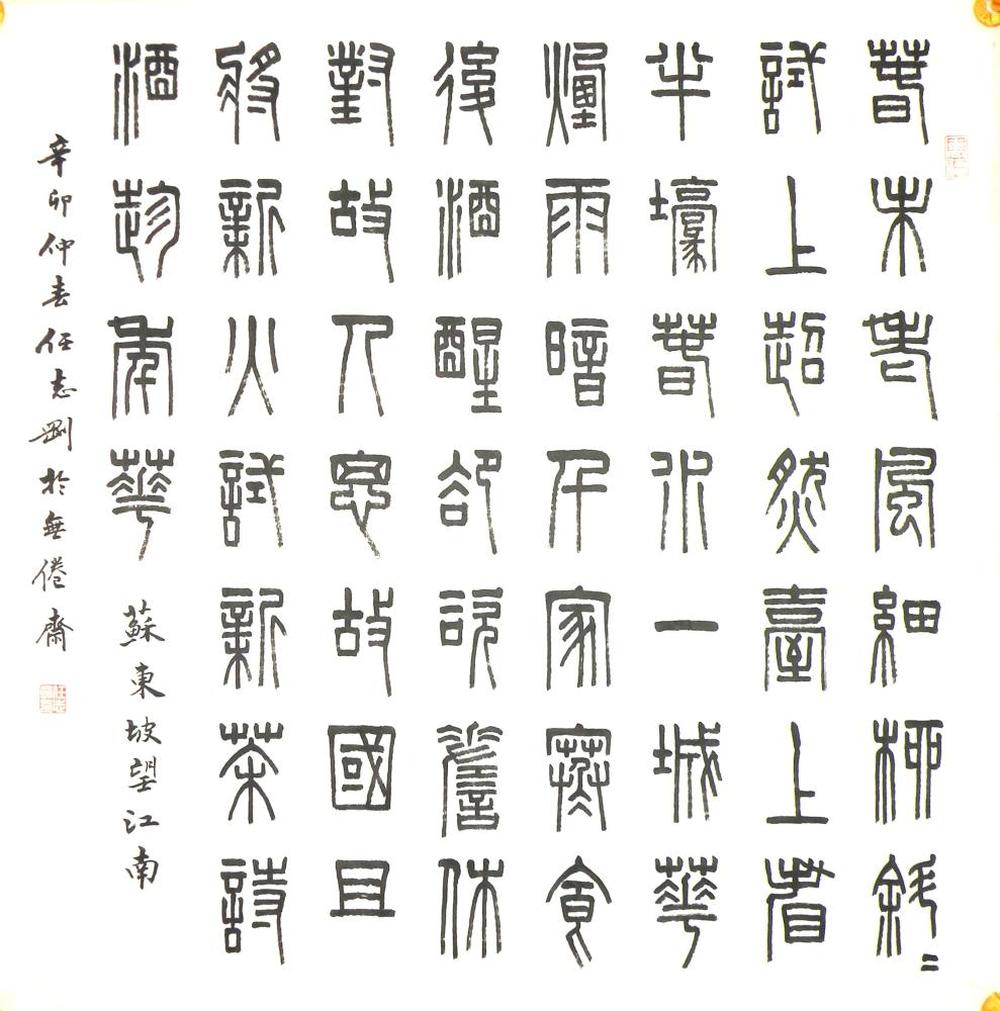 春未老風細柳斜〻
試上超然臺上看
半壕春水一城華
煙雨暗千家寒食
後酒醒卻咨嗟休
對故人思故國且
將新火試新茶詩
酒趁年華
蘇東坡望江南
辛卯仲春任志剛於無倦齋